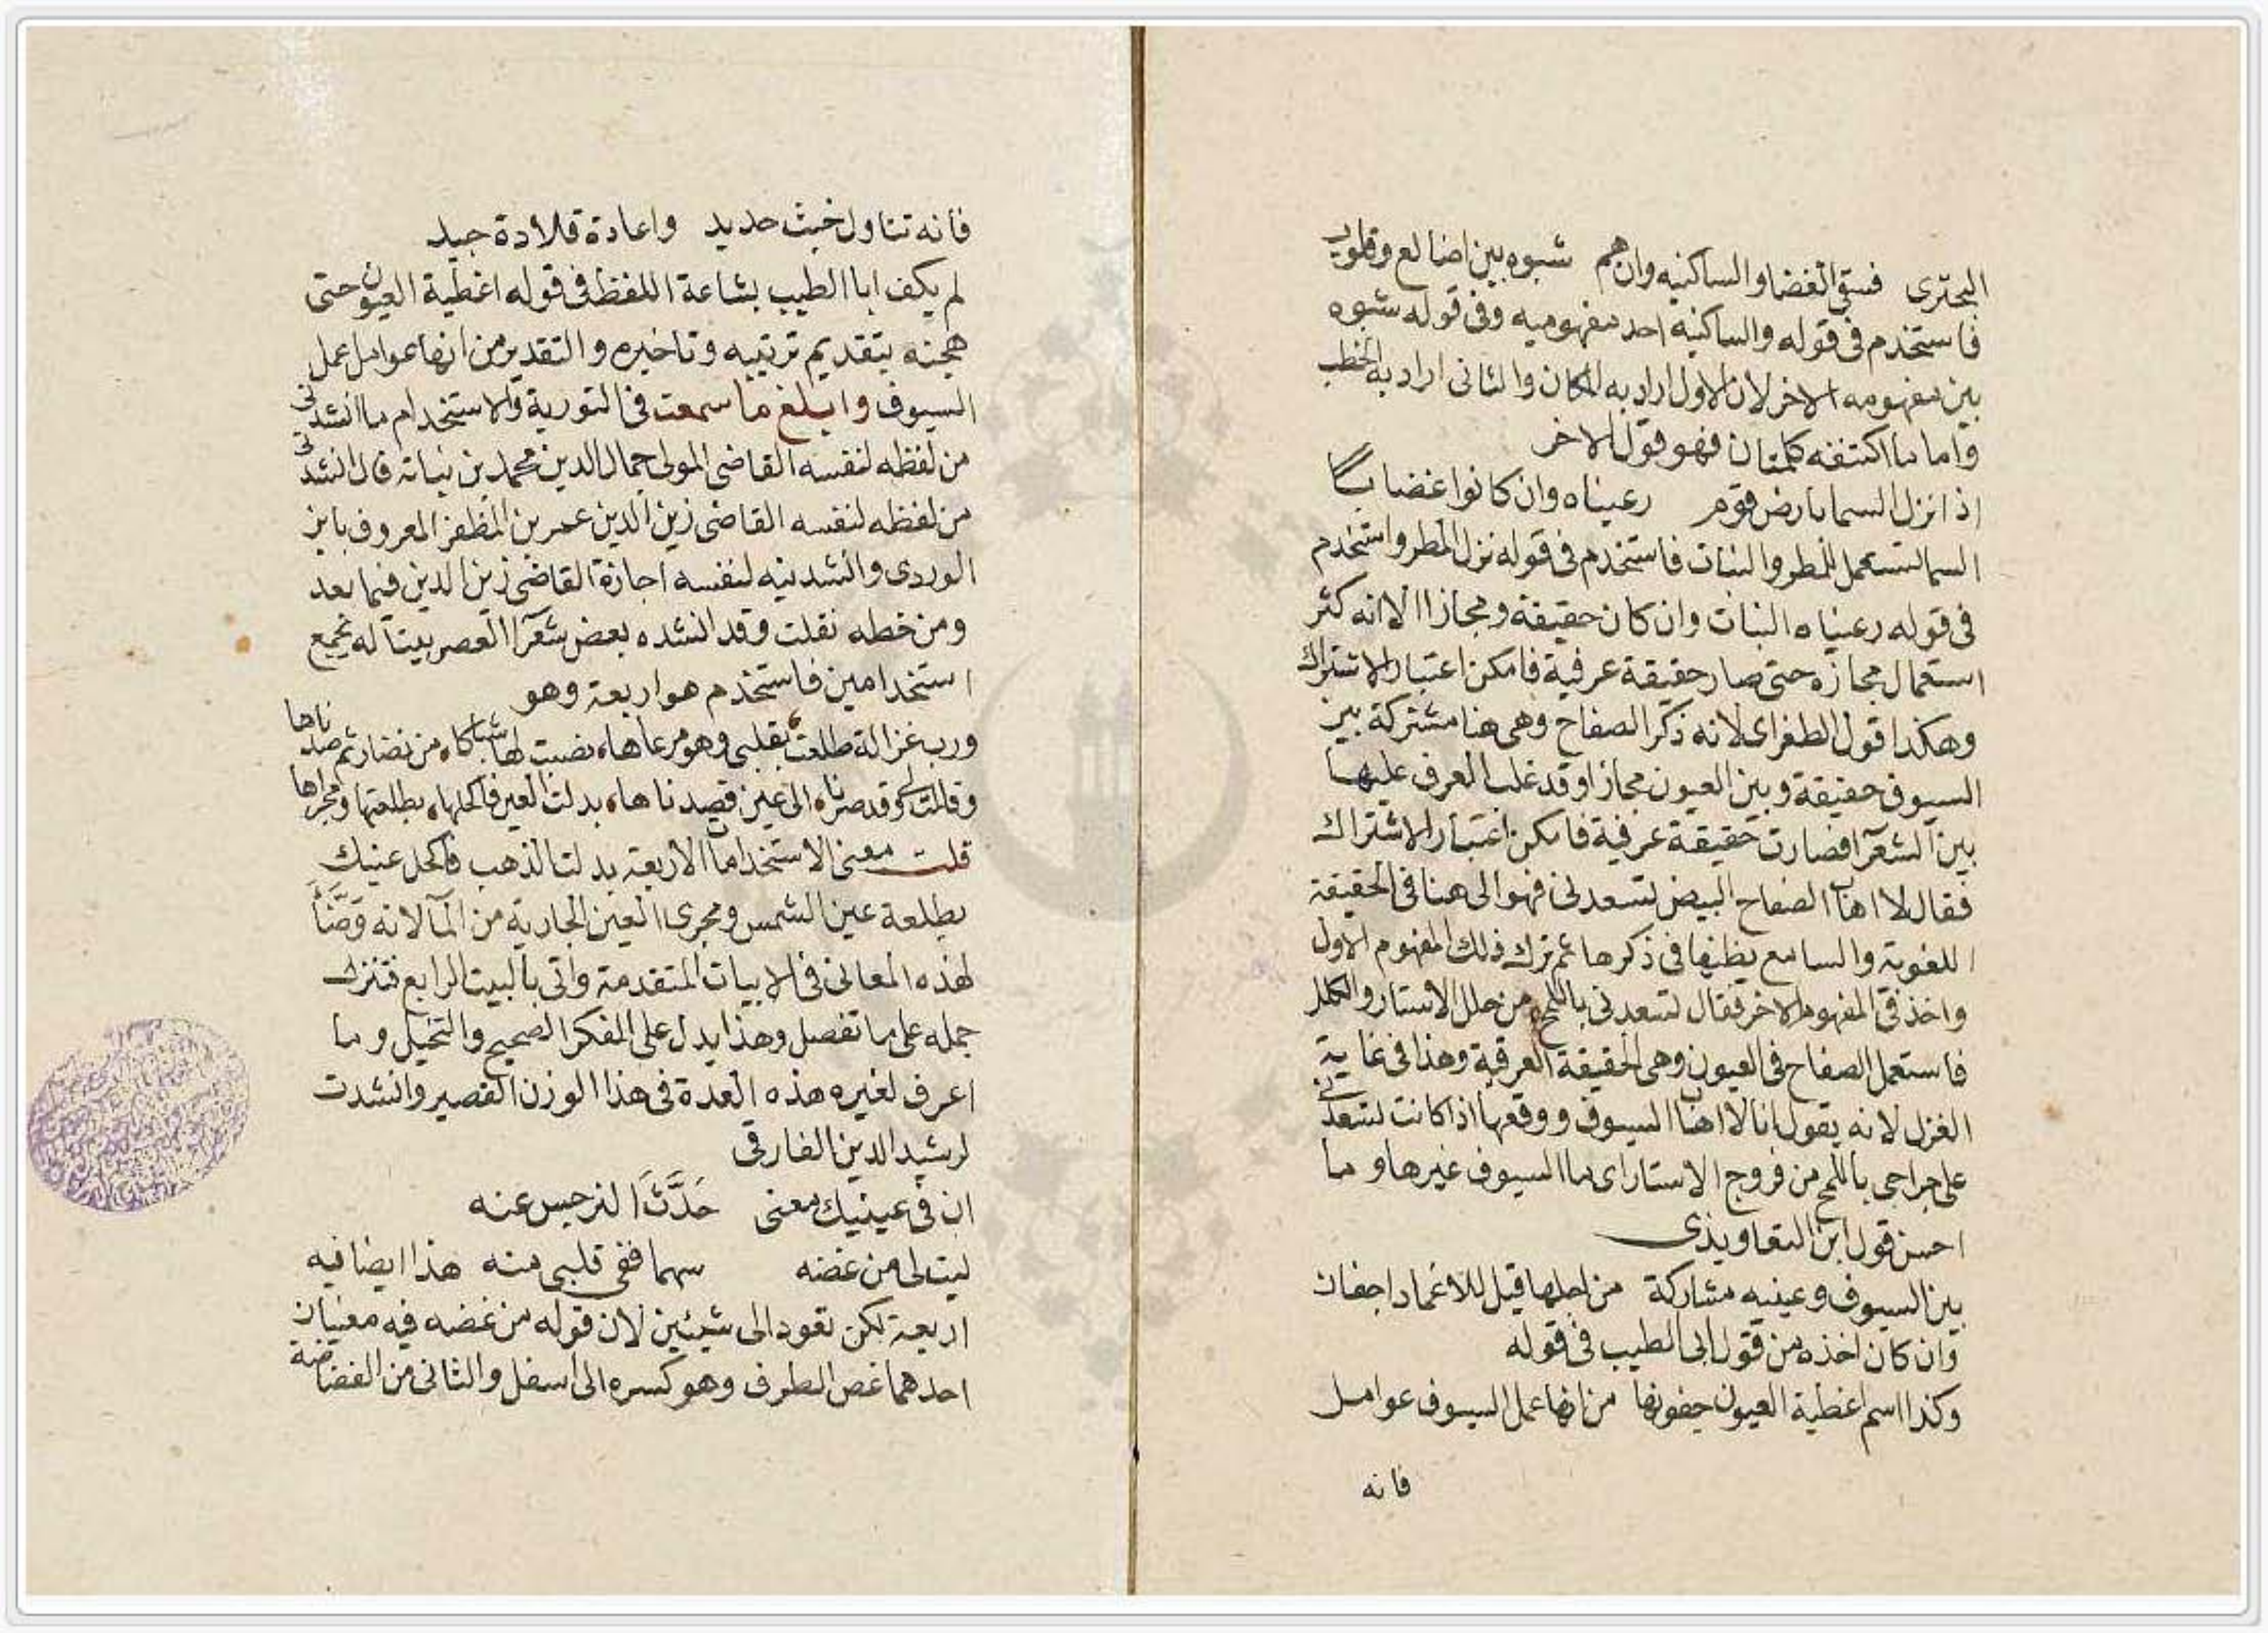 البحترى فسقى الغضا والساكنيه وان هم شبوه بين اضالع وقلوب
فاستخدم فى قوله والساكنيه احد مفهوميه وفى قوله شبوه
بين مفهومه الاخر لان الاول اراد به المكان والثانى اراد به الحطب
واما ما اكتنفه كلمتان فهو قول الاخر
اذا نزل السما بارض قوم رعيناه وان كانوا غضابا
السما تستعمل للمطر والنبات فاستخدم فى قوله نزل المطر واستخدم
فى قوله رعيناه النبات وان كان حقيقة ومجازا الا انه كثر
استعمال مجازه حتى صار حقيقة عرفية فامكن اعتبار الاشتراك
وهكذا قول الطغراى لانه ذكر الصفاح وهى هنا مشتركة بين
السيوف حقيقة وبين العيون مجازا وقد غلب العرف عليها
بين الشعرآ فصارت حقيقة عرفية فامكن اعتبار الاشتراك
فقال لا اهاب الصفاح البيض تسعدنى فهو الى هنا فى الحقيقة
اللغوية والسامع يظنها فى ذكرها ثم ترك ذلك المفهوم الاول
واخذ فى المفهوم الاخر فقال تسعدنى باللمح من خلل الاستار والكلل
فاستعمل الصفاح فى العيون وهى الحقيقة العرفية وهذا فى غاية
الغزل لانه يقول انا لا اهاب السيوف ووقعها اذا كانت تسعدنى
على جراحى باللمح من فروج الاستار اى ما السيوف غيرها وما
احسن قول ابن التعاويذى
بين السيوف وعينيه مشاركة من اجلها قيل للاغماد اجفان
وان كان اخذه من قول ابى الطيب فى قوله
وكذا اسم اغطية العيون جفونها من انها عمل السيوف عوامل
فانه
فانه تناول خبث حديد واعادة قلادة جيد
لم يكف ابا الطيب بشاعة اللفظ فى قوله اغطية العيون حتى
هجنه بتقديم ترتيبه وتاخيره والتقدير من انها عوامل عمل
السيوف وابلغ ما سمعت فى التورية والاستخدام ما انشدنى
من لفظه لنفسه القاضى المولى جمال الدين محمد بن نباته قال انشدنى
من لفظه لنفسه القاضى زين الدين عمر بن المظفر المعروف بابن
الوردى وانشدنيه لنفسه اجازة القاضى زين الدين فيما بعد
ومن خطه نقلت وقد انشده بعض شعرآ العصر بيتا له يجمع
استخدامين فاستخدم هو اربعة وهو
ورب غزالة طلعت بقلبى وهو مرعاها نصبت لها شباكا من نضار ثم صدناها
وقالت لى وقد صرنا الى عين قصدناها بذلت العين فاكحلها بطلعتها ومجراها
قلت معنى الاستخدامات الاربعة بذلت الذهب فاكحل عينيك
بطلعة عين الشمس ومجرى العين الجارية من المآ لانه وطأ
لهذه المعانى فى الابيات المتقدمة واتى بالبيت الرابع فتنزل
جمله على ما تفصل وهذا يدل على الفكر الصحيح والتخيل وما
اعرف لغيره هذه العدة فى هذا الوزن القصير وانشدت
لرشيد الدين الفارقى
ان فى عينيك معنى حَدَّثَ النرجس عنه
ليت لى من غضه سهما ففى قلبى منه هذا ايضا فيه
اربعة لكن تعود الى شيئين لان قوله من غضه فيه معنيان
احدهما غض الطرف وهو كسره الى اسفل والثانى من الغضاضة